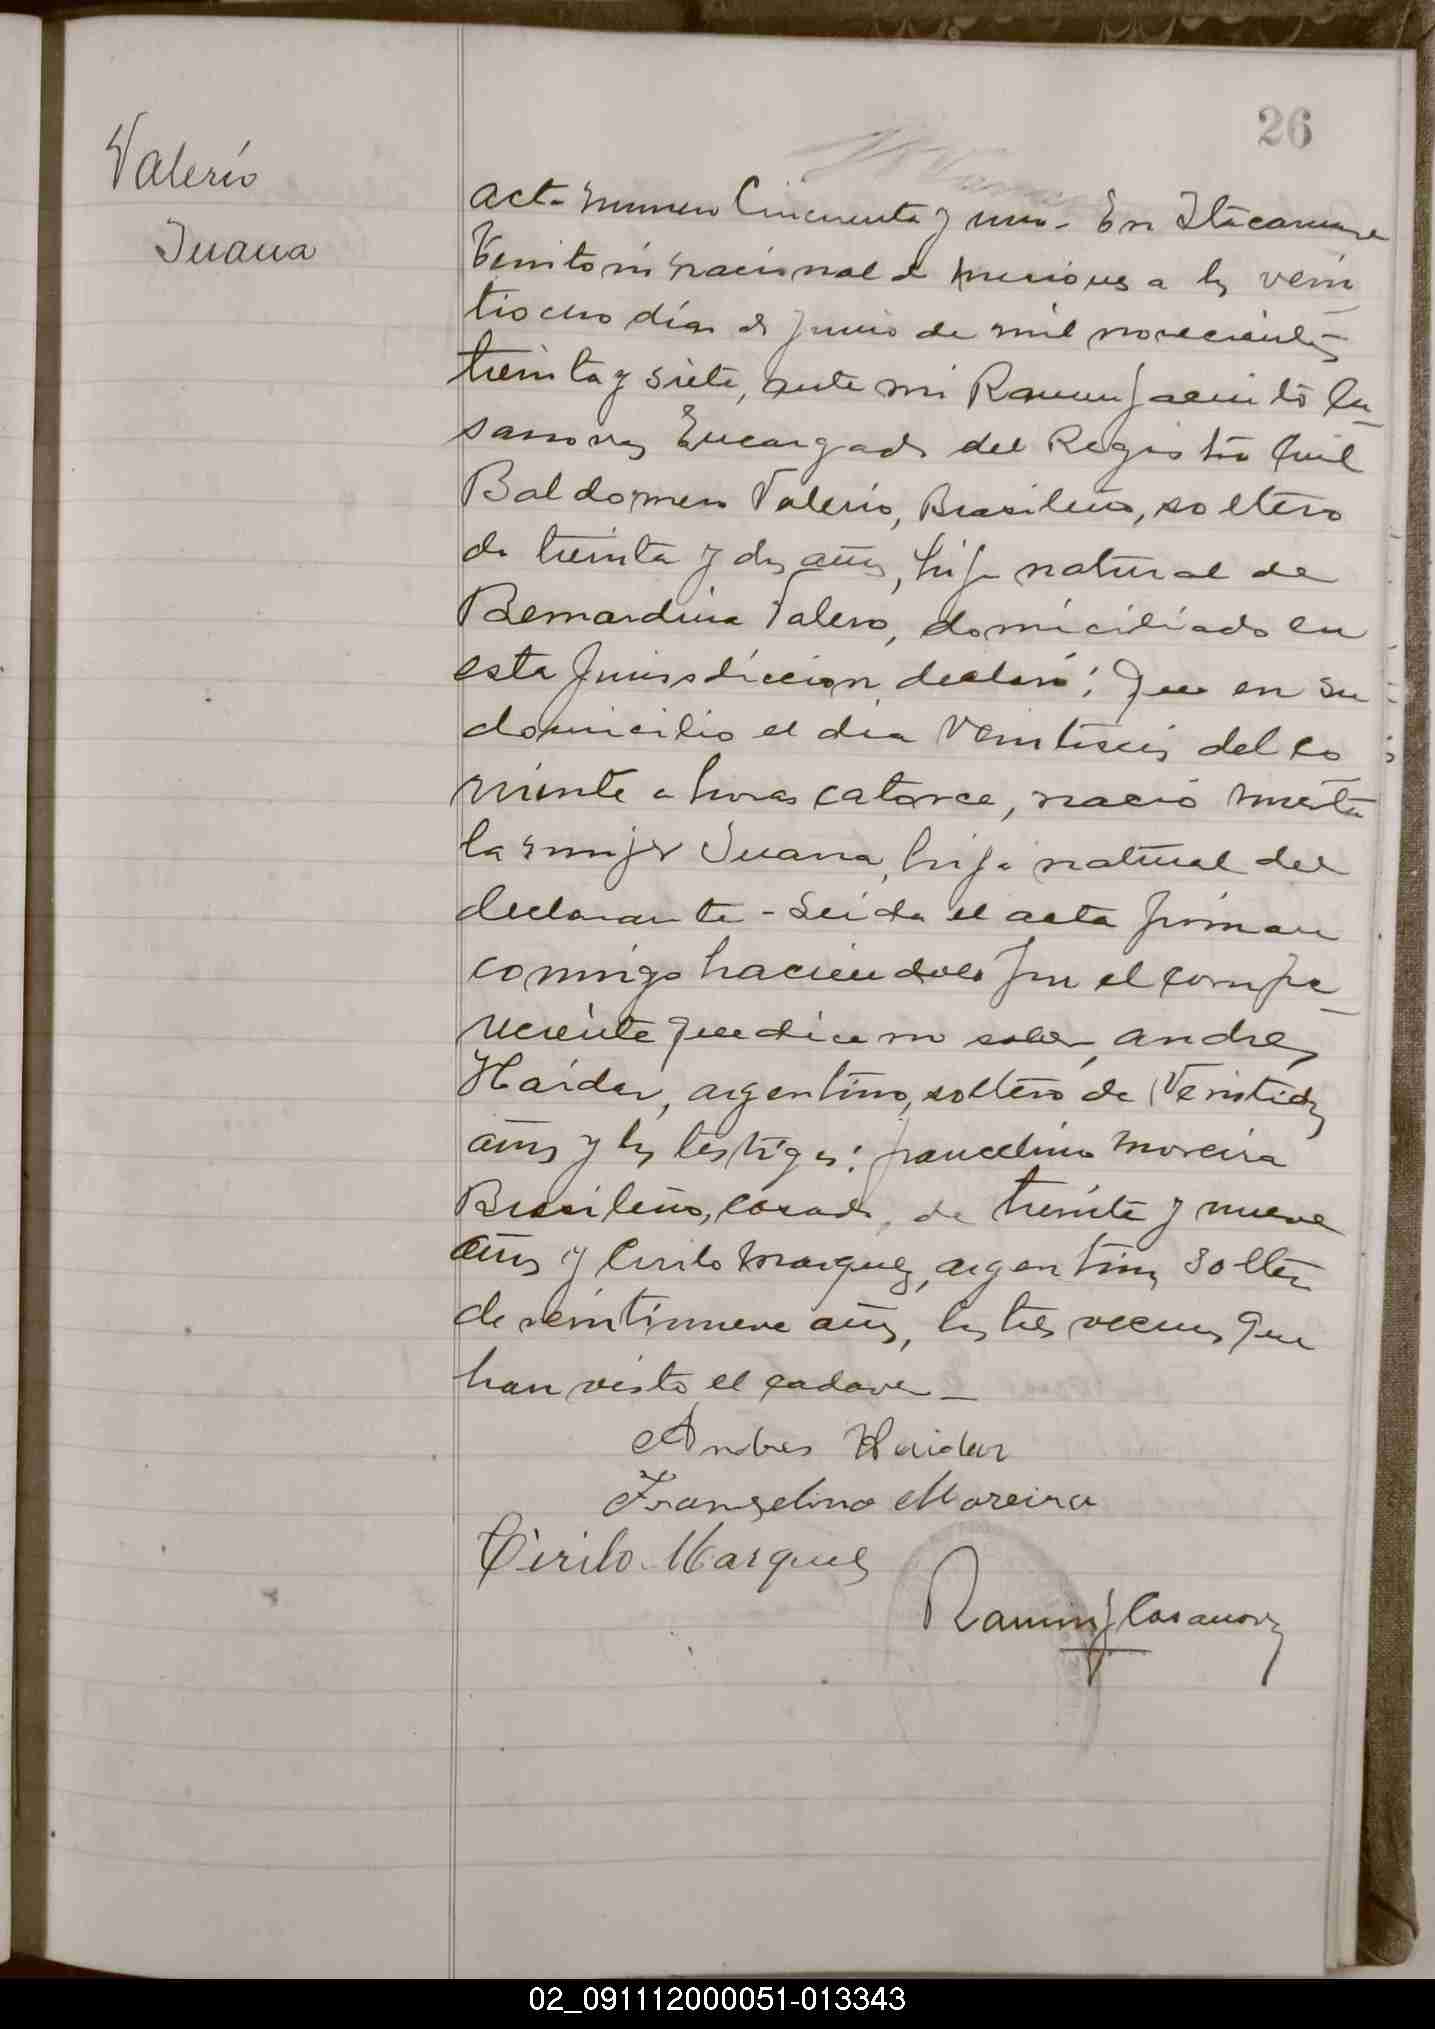 26
Valerio
Juana
Acta número Cincuenta y uno.- En Itacaruare
Territorio nacional de misiones a los vein
tiocho días de Junio de mil novecientos
treinta y siete, ante mi Ramon Jacinto Ca
sanova Encargado del Registro Civil
Baldomero Valerio, Brasileño, soltero
de treinta y dos años, hijo natural de
Bernardina Valero, domiciliado en
esta Jurisdiccion, declaró: Que en su
domicilio el dia Veintiseis del co
rriente a horas catorce, nació muerta
la mujer Juana, hija natural del
declarante - Leida el acta firman
conmigo haciendolo por el compa
reciente que dice no saber, Andres
Haidar, argentino, soltero de Veintidos
años y los testigos: francelino Moreira
Brasileño, casado, de treinta y nueve
años y Cirilo Marquez, argentino, soltero
de veintinueve años, los tres vecinos que
han visto el cadaver_
Andres Haidar
Frangelino Moreira
Cirilo Marques
Ramon J Casanova
02_091112000051-013343